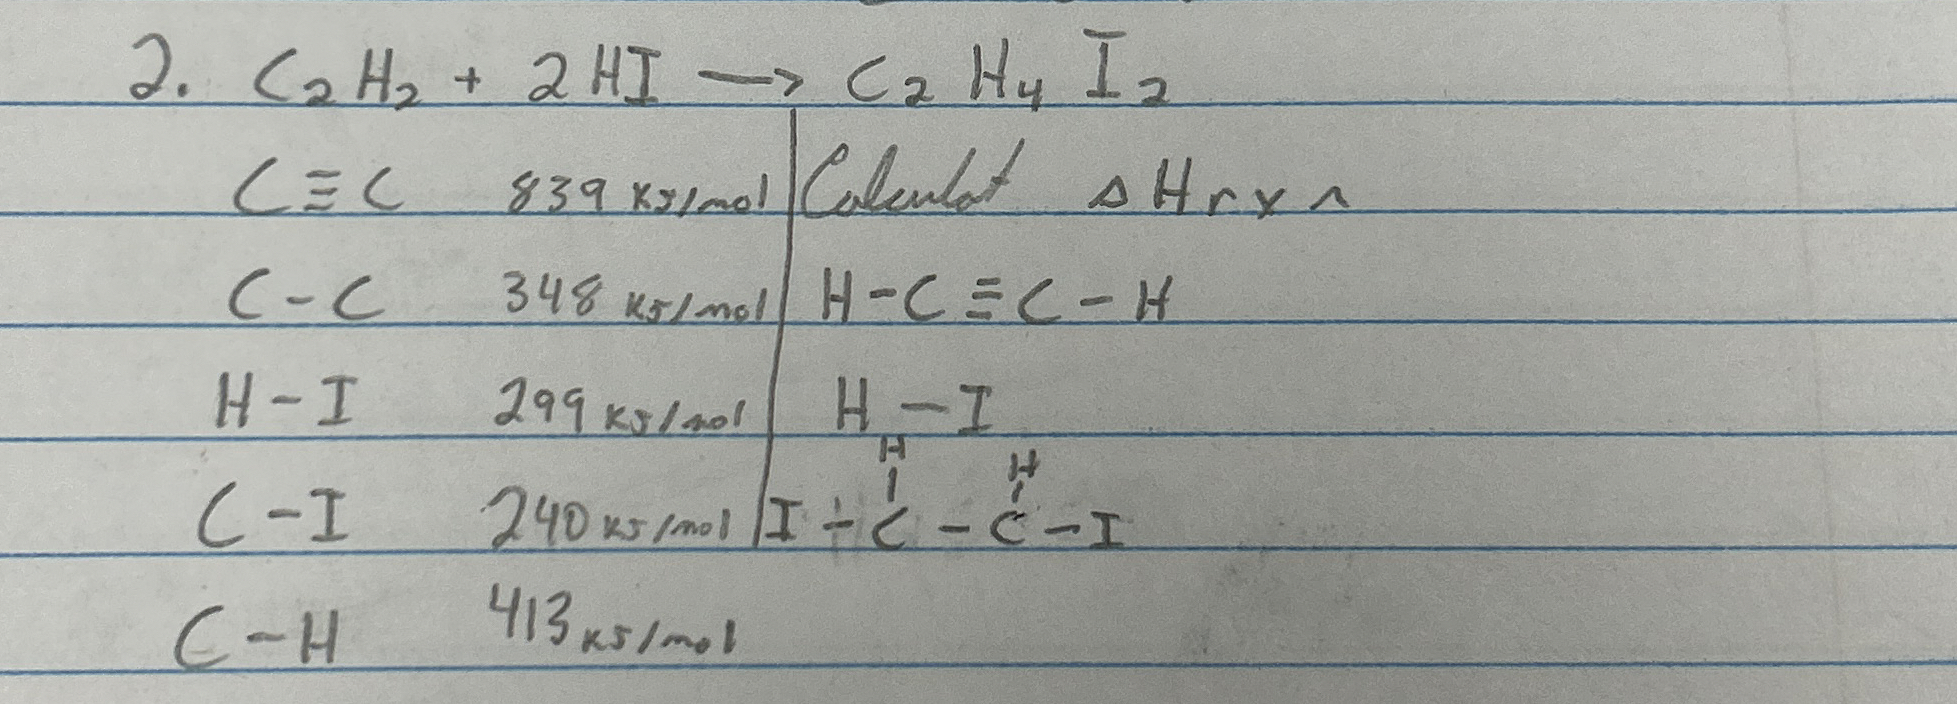 2. C₂H₂ + 2HI → C₂H₄I₂
C≡C 839 KJ/mol Calculat ΔHrxn
C-C 348 KJ/mol H-C≡C-H
H-I 299 KJ/mol H-I
H H
C-I 240 KJ/mol I-C-C-I
C-H 413 KJ/mol